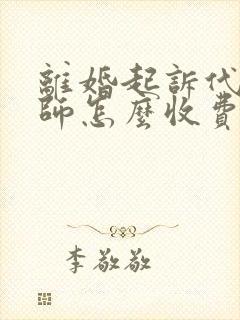 離婚起訴代
師怎麼收費
李敬敬